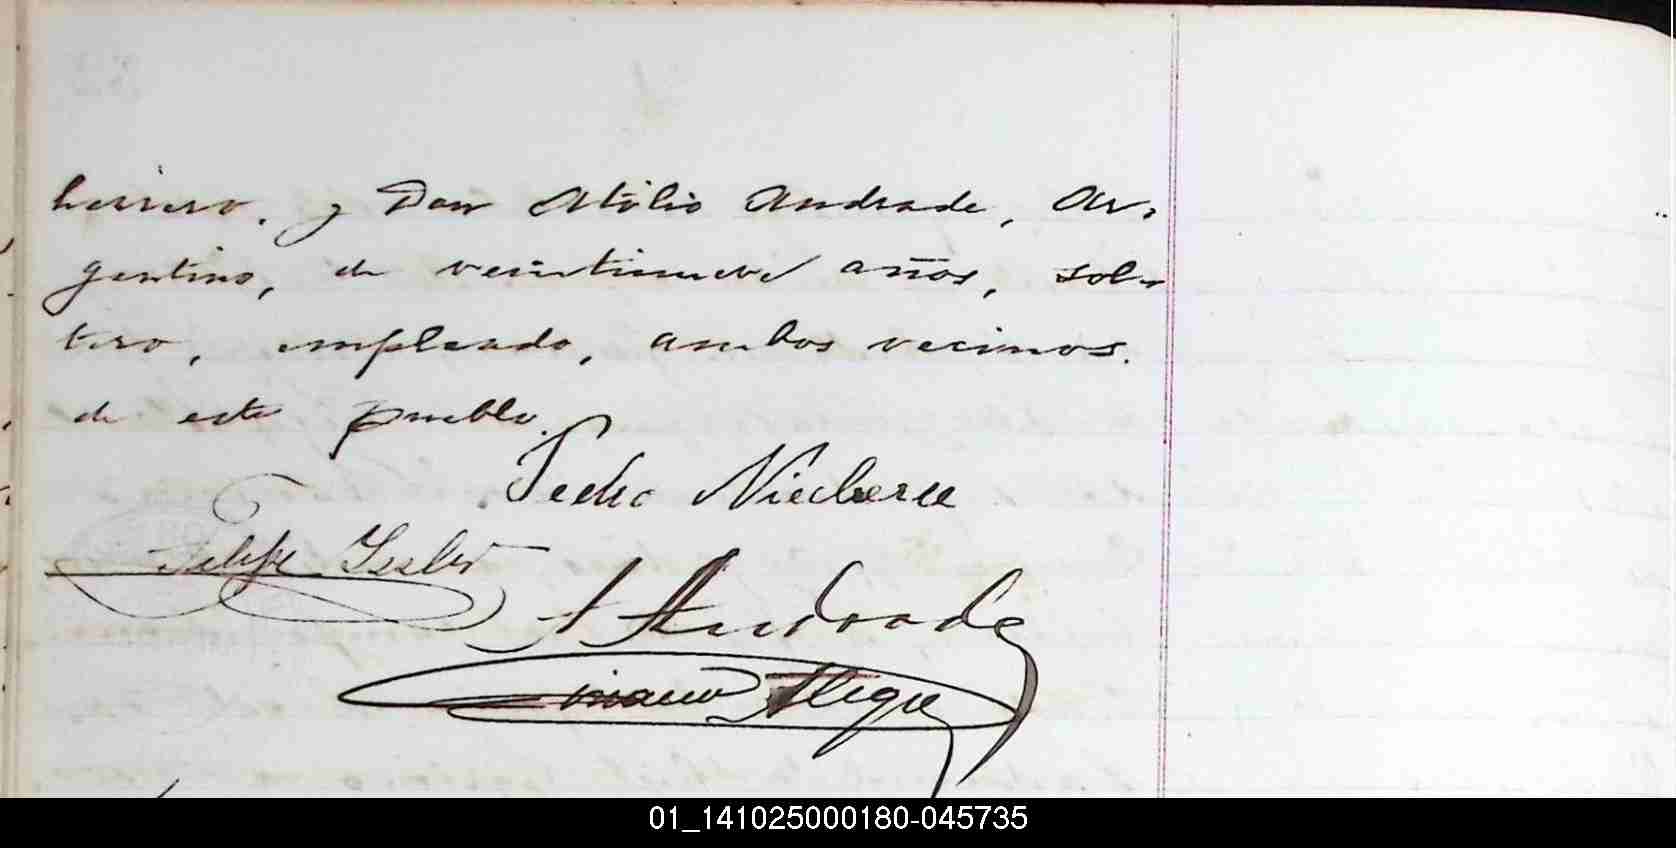 herrero, y Don Atilio Andrade, Ar-
gentino, de veintinueve años, sol-
tero, empleado, ambos vecinos.
de este pueblo.
Pedro
Felipe
A Andrade
Alegre
01_141025000180-045735